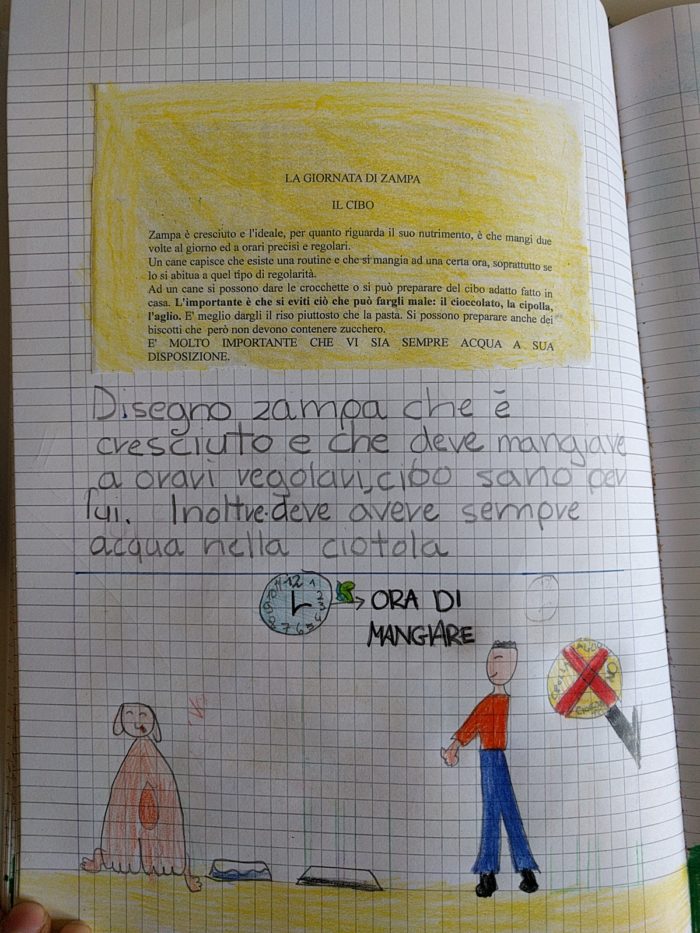 LA GIORNATA DI ZAMPA
IL CIBO
Zampa è cresciuto e l'ideale, per quanto riguarda il suo nutrimento, è che mangi due
volte al giorno ed a orari precisi e regolari.
Un cane capisce che esiste una routine e che si mangia ad una certa ora, soprattutto se
lo si abitua a quel tipo di regolarità.
Ad un cane si possono dare le crocchette o si può preparare del cibo adatto fatto in
casa. L'importante è che si eviti ciò che può fargli male: il cioccolato, la cipolla,
l'aglio. E' meglio dargli il riso piuttosto che la pasta. Si possono preparare anche dei
biscotti che però non devono contenere zucchero.
E' MOLTO IMPORTANTE CHE VI SIA SEMPRE ACQUA A SUA
DISPOSIZIONE.
Disegno zampa che è
cresciuto e che deve mangiare
a orari regolari, cibo sano per
lui. Inoltre deve avere sempre
acqua nella ciotola
12 1 2 3 4 5 6 7 8 9 10 11
ORA DI
MANGIARE